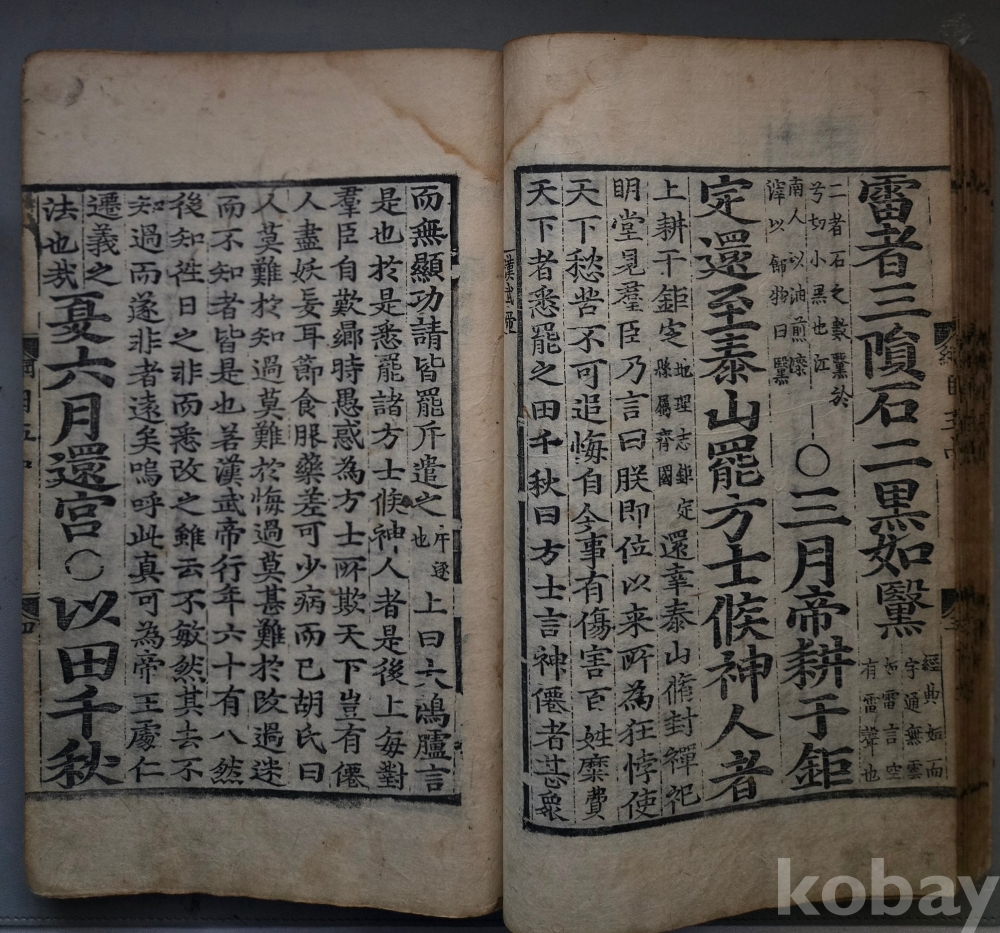 雷者三隕石二黒如黳
經典如而
字通無雲
如雷言空
有雷聲也
二者石之數黳於
兮切小黒也江
南人以油煎漆
滓以飾物曰黳
〇三月帝耕于鉅
定還至泰山罷方士候神人者
上耕于鉅定地理志鉅定縣屬齊國還幸泰山脩封禪祀
明堂見羣臣乃言曰朕即位以来所為狂悖使
天下愁苦不可追悔自今事有傷害百姓糜費
天下者悉罷之田千秋曰方士言神僊者甚衆
漢武
而無顯功請皆罷斥遣之斥逐也上曰大鴻臚言
是也於是悉罷諸方士候神人者是後上每對
羣臣自歎嚮時愚惑為方士所欺天下豈有僊
人盡妖妄耳節食服藥差可少病而已胡氏曰
人莫難於知過莫難於悔過莫甚難於改過迷
而不知者皆是也若漢武帝行年六十有八然
後知徃日之非而悉改之雖云不敏然其去不
知過而遂非者遠矣嗚呼此真可為帝王處仁
遷義之
法也㢤夏六月還宫〇以田千秋
kobay